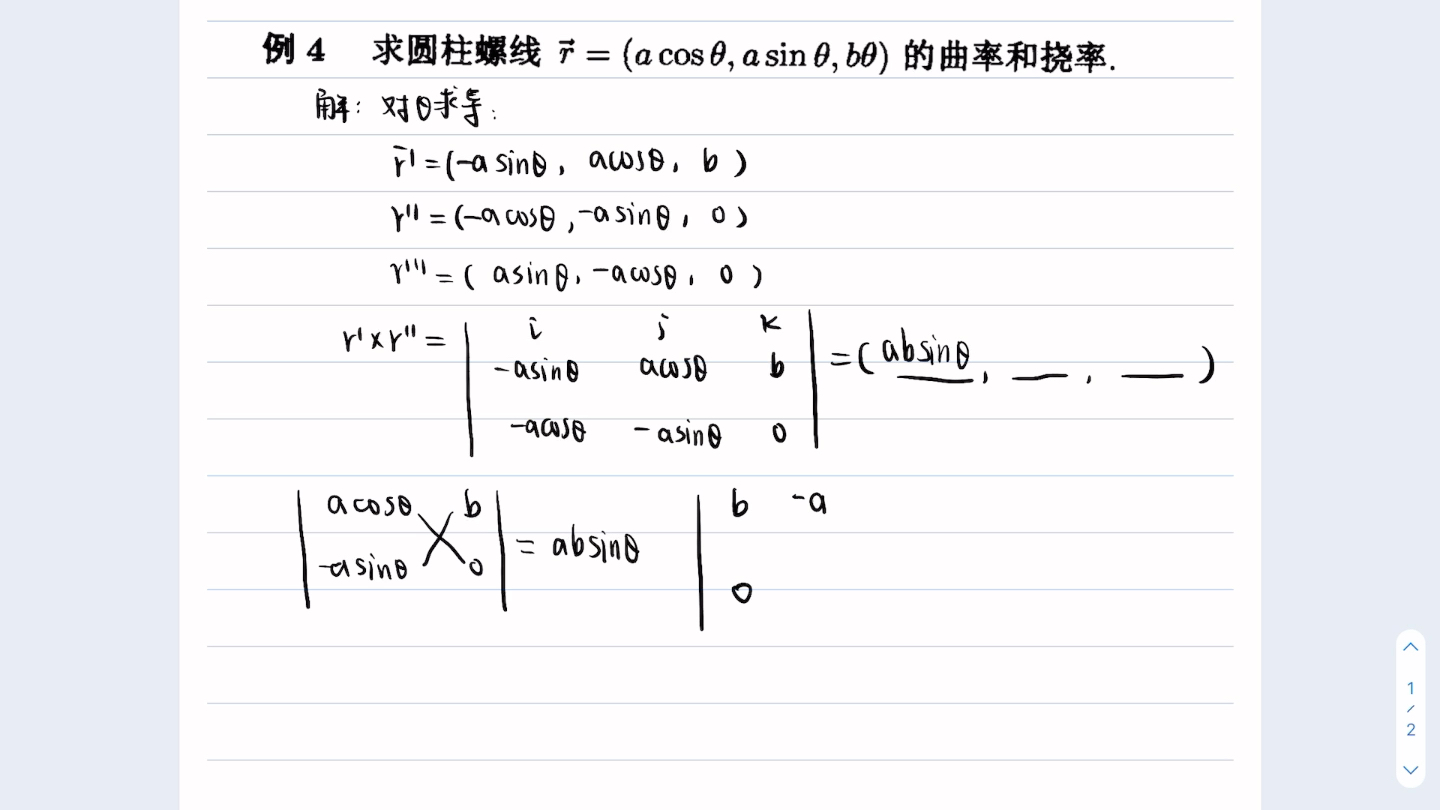 例 4 求圆柱螺线 r⃗ = (a cos θ, a sin θ, bθ) 的曲率和挠率.
解: 对θ求导:
r⃗' = (-a sinθ, a cosθ, b)
r'' = (-a cosθ, -a sinθ, 0)
r''' = ( a sinθ, -a cosθ, 0 )
r' × r'' = | i j k
-a sinθ a cosθ b
-a cosθ -a sinθ 0 | = ( ab sinθ, __, __ )
| a cosθ b b -a
-a sinθ 0 | = ab sinθ | 0
1
/
2